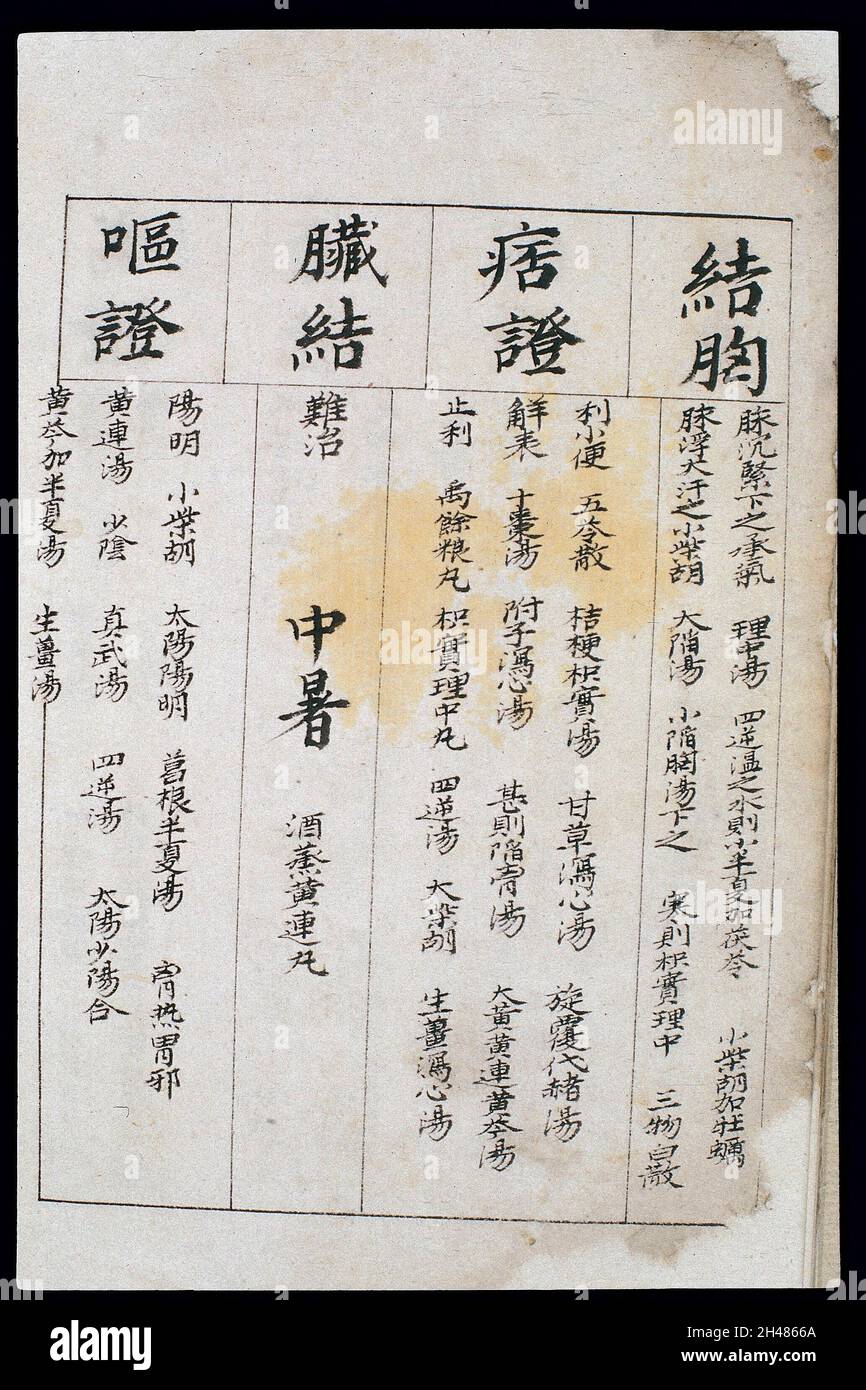 結胸
脉沉緊下之承氣 理中湯 四逆温之水則小半夏加茯苓 小柴胡加牡蠣
脉浮大汗之小柴胡 大陷湯 小陷胸湯下之 寒則枳實理中 三物白散
痞證
利小便 五苓散 桔梗枳實湯 甘草瀉心湯 旋覆代赭湯
解表 十棗湯 附子瀉心湯 甚則陷胷湯 大黄黄連黄芩湯
止利 禹餘粮丸 枳實理中丸 四逆湯 大柴胡 生薑瀉心湯
臟結
難治
中暑 酒蒸黄連丸
嘔證
陽明 小柴胡 太陽陽明 葛根半夏湯 胷热胃邪
黄連湯 少陰 真武湯 四逆湯 太陽少陽合
黄芩加半夏湯 生薑湯
alamy
alamy
Image ID: 2H4866A
www.alamy.com